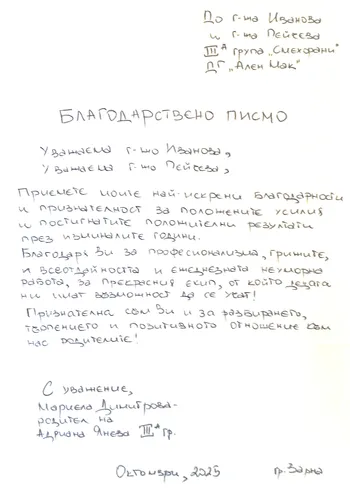 До г-жа Иванова
и г-жа Пейчева
III А група "Смехорани"
ДГ "Ален Мак"
БЛАГОДАРСТВЕНО ПИСМО
Уважаема г-жо Иванова,
Уважаема г-жо Пейчева,
Приемете моите най-искрени благодарности
и признателност за положените усилия
и постигнатите положителни резултати
през изминалите години.
Благодаря Ви за професионализма, грижите,
и всеотдайността и ежедневната неуморна
работа, за прекрасния екип, от който децата
ни имат възможност да се учат!
Признателна съм Ви и за разбирането,
търпението и позитивното отношение към
нас родителите!
С уважение,
Мариела Димитрова-
родител на
Адриана Янева III А гр.
Октомври, 2025 гр. Варна